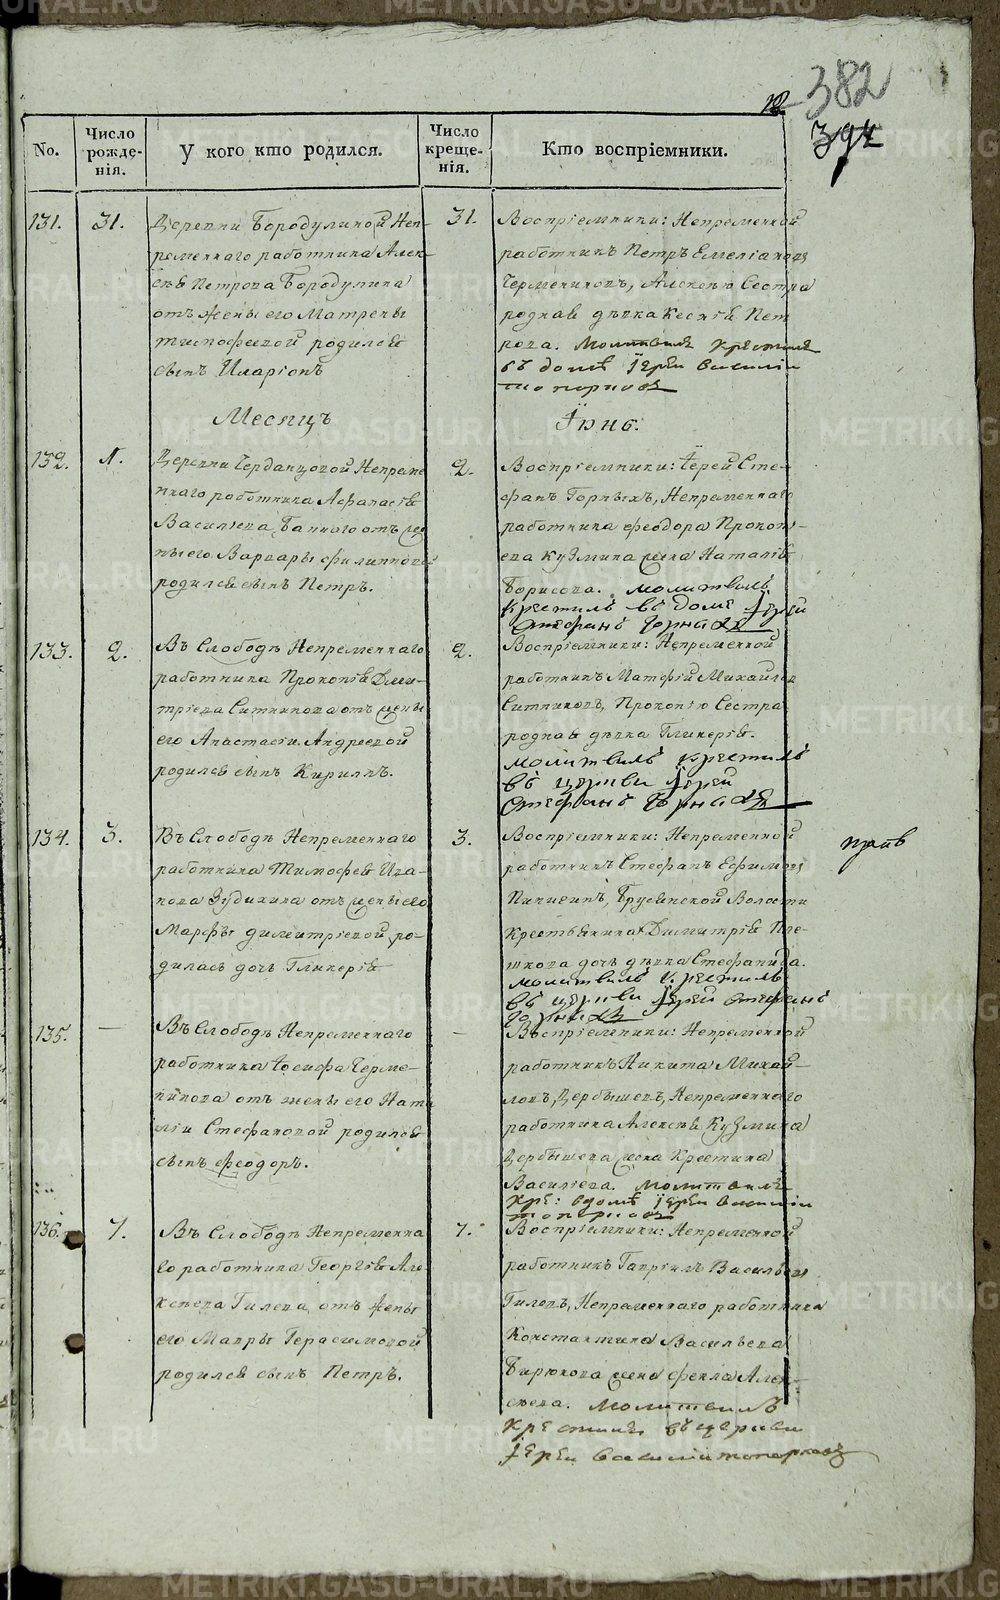 382
392
No.
Число рожде-нія.
У кого кто родился.
Число креще-нія.
Кто воспріемники.
131.
31.
Деревни Бородулиной Неп-
ременнаго работника Алек-
сѣя Петрова Бородулина
отъ жены его Матрены
тимофеевой родился
сынъ Иларіонъ
31.
Воспріемники: Непременной
работникъ Петръ Емеліановъ
Чермениновъ, Алексѣю Сестра
родная дѣвка Ксенія Пет
рова. Молитвилъ Крестилъ
въ домѣ іерей василіи
топорковъ
Месяцъ
Іюнь.
132.
1.
Деревни Черданцовой Непреме
ннаго работника Афанасія
Васильева Баннаго отъ же
ны его Варвары филиповой
родился сынъ Петръ.
2.
Воспріемники: іерей Сте-
фанъ Горныхъ, Непременнаго
работника феодора Прокопь-
ева Кузмина жена Наталія
Борисова. молитвилъ
Крестилъ въ доме іерей
Стефанъ Горныхъ
133.
2.
Въ Слободѣ Непременнаго
работника Прокопія Дми-
тріева Ситникова отъ жены
его Анастасіи Андреевой
родился сынъ Кириллъ.
2.
Воспріемники: Непременной
работникъ Матфій Михайлов
Ситниковъ, Прокопію Сестра
родная дѣвка Гликерія.
молитвилъ крестилъ
въ церкви іерей
Стефанъ Горныхъ
134.
3.
Въ Слободѣ Непременнаго
работника Тимофея Ива-
нова Зудихина отъ жены его
Марфы димитріевой ро-
дилась дочь Гликерія
3.
Воспріемники: Непременной
работникъ Стефанъ Ефимовъ
Пинигинъ, Брусянской Волости
Крестьянина Димитрія Пле-
шкова дочь дѣвка Стефанида.
молитвилъ Крестилъ
въ церкви іерей Стефанъ
Горныхъ
135.
—
Въ Слободѣ Непременнаго
работника Іосифа Черме-
нинова отъ жены его Ната
ліи Стефановой родился
сынъ Феодоръ.
—
Воспріемники: Непременной
работникъ Никита Михай-
ловъ, Дербышевъ, Непременнаго
работника Алексѣя Кузмина
Дербышева жена Крестина
Васильева. молитвилъ
Кре: вдомѣ іерей василіи
топорковъ
136.
7.
Въ Слободѣ Непременна
го работника Георгія Але-
ксѣева Гилева, отъ жены
его Мавры Герасимовой
родился сынъ Петръ.
7.
Воспріемники: Непременной
работникъ Гавріилъ Васильевъ
Гилевъ, Непременнаго работника
Константина Васильева
Бирюкова жена фекла Алек-
сѣева. молитвилъ
Крестилъ въ церкви
іерей василіи топорковъ